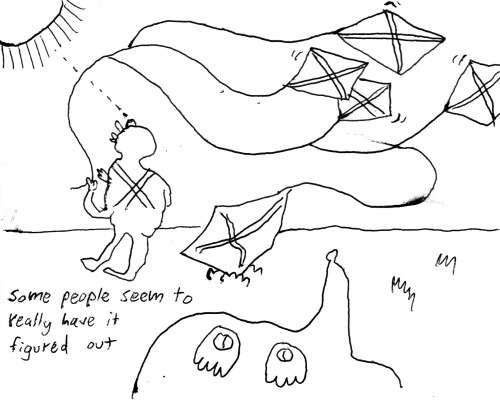 Some people seem to
really have it
figured out